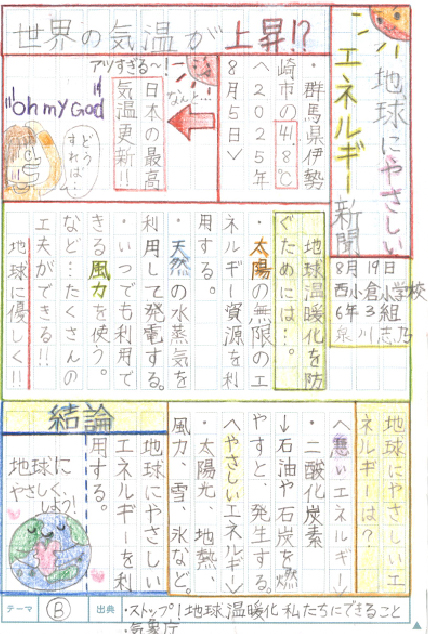 地球にやさしい
エネルギー新聞
8月19日
西小倉小学校
6年3組
泉川志乃
世界の気温が上昇!?
・群馬県伊勢
崎市の41.8℃
〈2025年
8月5日〉
なんと…
日本の最高
気温更新!!
アツすぎる~!
"Oh my God"
どう
すれば…
地球温暖化を防
ぐためには…。
・太陽の無限のエ
ネルギー資源を利
用する。
・天然の水蒸気を
利用して発電する。
・いつでも利用で
きる風力を使う。
など…たくさんの
工夫ができる!!
地球に優しく!!
地球にやさしいエ
ネルギーは?
〈悪いエネルギー〉
・二酸化炭素
↓石油や石炭を燃
やすと、発生する。
〈やさしいエネルギー〉
・太陽光、地熱、
風力、雪、氷など。
結論
地球にやさしい
エネルギーを利
用する。
地球に
やさしく、
テーマ
B
出典
・ストップ!地球温暖化私たちにできること
・気象庁